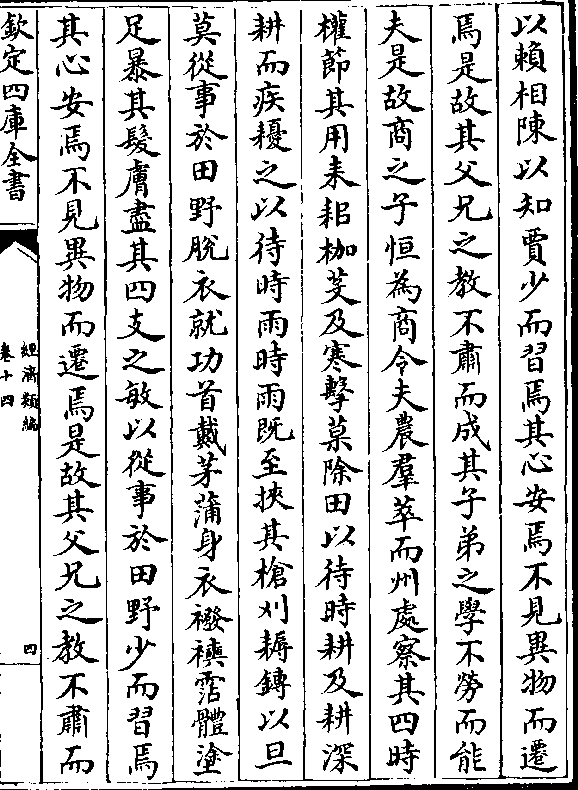 以賴相陳以知賈少而習焉其心安焉不見異物而遷
焉是故其父兄之教不肅而成其子弟之學不勞而能
夫是故商之子恒為商令夫農羣萃而州處察其四時
權節其用耒耜枷芟及寒擊菒除田以待時耕及耕深
耕而疾耰之以待時雨時雨既至挾其槍刈耨鎛以旦
莫從事於田野脫衣就功首戴茅蒲身衣襏襫霑體塗
足暴其髮膚盡其四支之敏以從事於田野少而習焉
其心安焉不見異物而遷焉是故其父兄之教不肅而
欽定四庫全書
經濟類編
卷十四
四